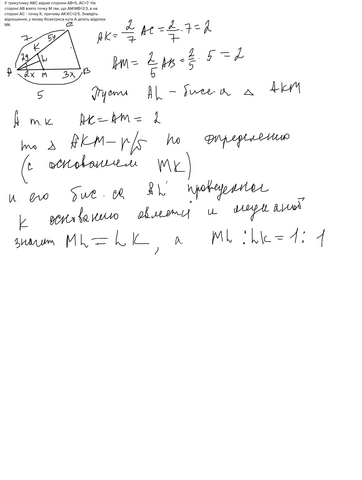 У трикутнику ABC відомі сторони AB=5, AC=7. На
стороні AB взято точку M так, що AM:MB=2:3, а на
стороні AC - точку K, причому AK:KC=2:5. Знайдіть
відношення, у якому бісектриса кута A ділить відрізок
MK.
C
7 5x
K
2y L
A 2x M 3x B
5
AK = 2/7 AC = 2/7 · 7 = 2
AM = 2/5 AB = 2/5 · 5 = 2
Пусть AL – бисс-а △ AKM
А т к AK = AM = 2
то △ AKM – р/б по определению
(с основанием MK)
и его бис-са AL проведенная
к основанию является и медианой
значит ML = LK, а ML : LK = 1 : 1